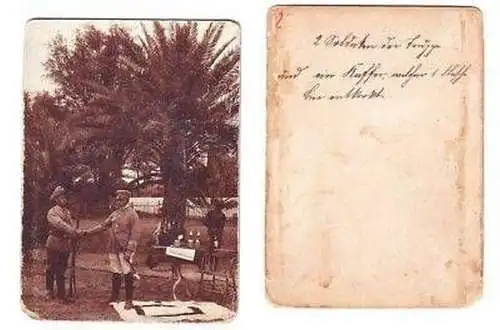 2 Soldaten der Truppe
und ein Kaffer, welcher 1 Flasche
Bier entkorkt.